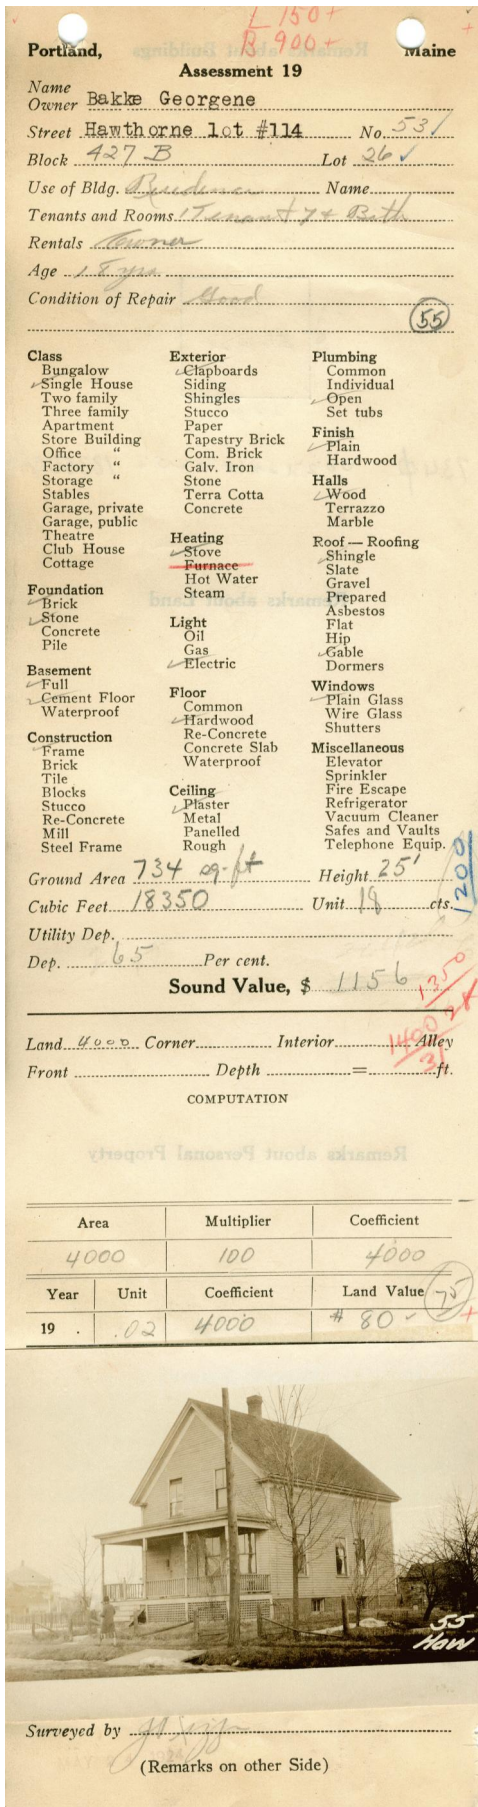 L 150+
B 900+
Portland, Maine
Assessment 19
Name
Owner Bakke Georgene
Street Hawthorne lot #114 No. 53 ✓
Block 427 B Lot 26 ✓
Use of Bldg. Residence Name
Tenants and Rooms 1 Tenant 7 + Bath
Rentals Owner
Age 18 yrs
Condition of Repair Good
55
Class
Bungalow
✓ Single House
Two family
Three family
Apartment
Store Building
Office "
Factory "
Storage "
Stables
Garage, private
Garage, public
Theatre
Club House
Cottage
Foundation
✓ Brick
✓ Stone
Concrete
Pile
Basement
✓ Full
✓ Cement Floor
Waterproof
Construction
✓ Frame
Brick
Tile
Blocks
Stucco
Re-Concrete
Mill
Steel Frame
Exterior
✓ Clapboards
Siding
Shingles
Stucco
Paper
Tapestry Brick
Com. Brick
Galv. Iron
Stone
Terra Cotta
Concrete
Heating
✓ Stove
Furnace
Hot Water
Steam
Light
Oil
Gas
✓ Electric
Floor
Common
✓ Hardwood
Re-Concrete
Concrete Slab
Waterproof
Ceiling
✓ Plaster
Metal
Panelled
Rough
Plumbing
Common
Individual
✓ Open
Set tubs
Finish
✓ Plain
Hardwood
Halls
✓ Wood
Terrazzo
Marble
Roof — Roofing
✓ Shingle
Slate
Gravel
Prepared
Asbestos
Flat
Hip
✓ Gable
Dormers
Windows
✓ Plain Glass
Wire Glass
Shutters
Miscellaneous
Elevator
Sprinkler
Fire Escape
Refrigerator
Vacuum Cleaner
Safes and Vaults
Telephone Equip.
1200
Ground Area 734 sq-ft Height 25'
Cubic Feet 18350 Unit 18 cts.
Utility Dep.
Dep. 65 Per cent.
Sound Value, $ 1156
1350
1400
31
Land 4000 Corner Interior Alley
Front Depth = ft.
COMPUTATION
Area Multiplier Coefficient
4000 100 4000
Year Unit Coefficient Land Value 75
19 . .02 4000 # 80-
55
Haw
Surveyed by
(Remarks on other Side)